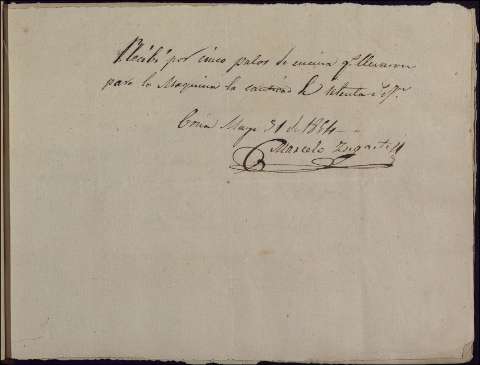 Recibí por cinco palos de encina q.e llevaron
para la Maquina la cantidad de setenta r.s
Coria Mayo 31 de 1884
Marcelo Zugasti